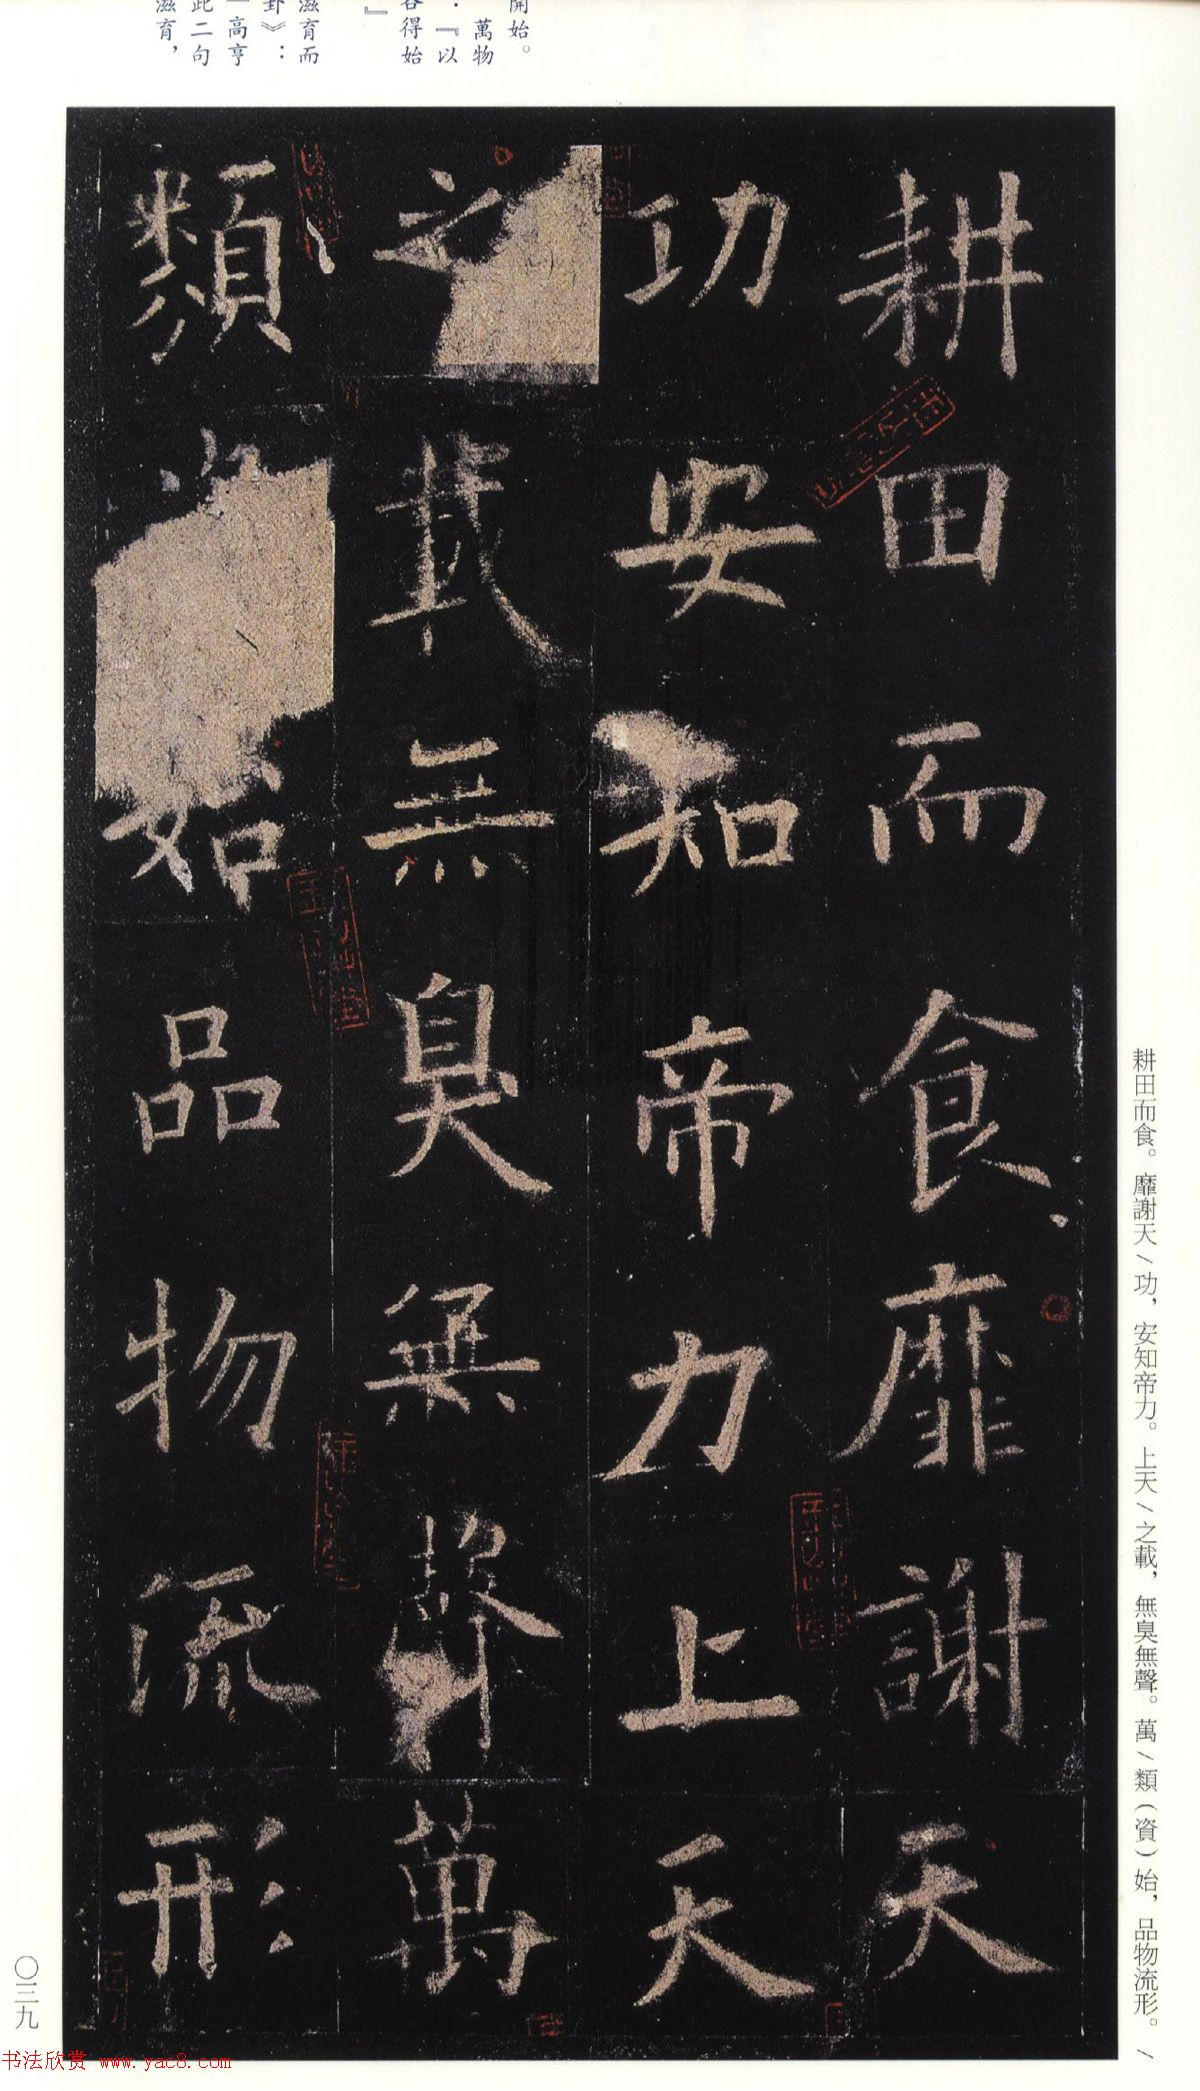 開始。
萬物
：『以
得始
』
滋育而
卦》：
高亨
此二句
滋育，
耕田而食靡謝天
功安知帝力上天
之載無臭無聲萬
類始品物流形
耕田而食。靡謝天/功，安知帝力。上天/之載，無臭無聲。萬/類（資）始，品物流形。/
〇三九
书法欣赏 www.yac8.com